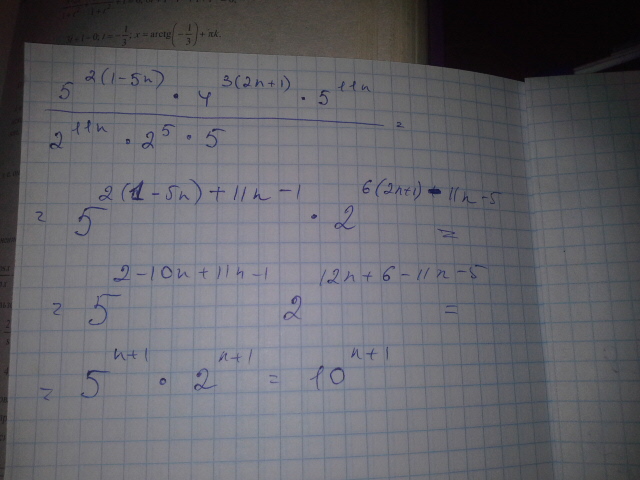 t = -\frac{1}{3}, x = arctg(-\frac{1}{3}) + πk.
\frac{5^{2(1-5n)} · 4^{3(2n+1)} · 5^{11n}}{2^{11n} · 2^{5} · 5} =
= 5^{2(1-5n)+11n-1} · 2^{6(2n+1)-11n-5} =
= 5^{2-10n+11n-1} 2^{12n+6-11n-5} =
= 5^{n+1} · 2^{n+1} = 10^{n+1}